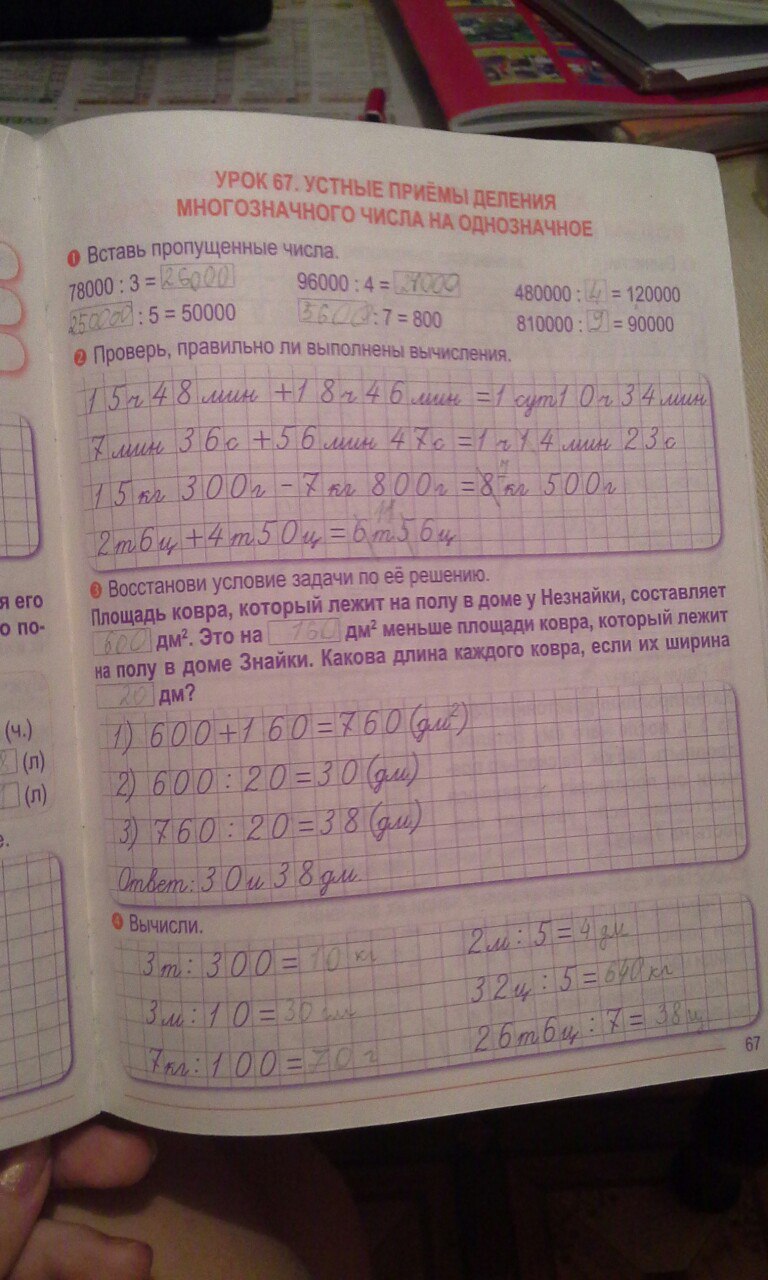 УРОК 67. УСТНЫЕ ПРИЁМЫ ДЕЛЕНИЯ
МНОГОЗНАЧНОГО ЧИСЛА НА ОДНОЗНАЧНОЕ
1 Вставь пропущенные числа.
78000 : 3 = 26000 96000 : 4 = 24000 480000 : 4 = 120000
250000 : 5 = 50000 5600 : 7 = 800 810000 : 9 = 90000
2 Проверь, правильно ли выполнены вычисления.
15ч 48 мин + 18ч 46 мин = 1 сут 10ч 34 мин
7 мин 36с + 56 мин 47с = 1ч 14 мин 23с
15кг 300г - 7кг 800г = 8 7 кг 500г
11
2т6ц + 4т50ц = 6т56ц
3 Восстанови условие задачи по её решению.
Площадь ковра, который лежит на полу в доме у Незнайки, составляет
600 дм². Это на 160 дм² меньше площади ковра, который лежит
на полу в доме Знайки. Какова длина каждого ковра, если их ширина
20 дм?
1) 600 + 160 = 760 (дм²)
2) 600 : 20 = 30 (дм)
3) 760 : 20 = 38 (дм)
Ответ: 30 и 38 дм.
4 Вычисли.
3т : 300 = 10 кг 2м : 5 = 4 дм
3м : 10 = 30 см 32ц : 5 = 640 кг
7кг : 100 = 70 г 26т6ц : 7 = 38ц
67
я его
о по-
(ч.)
(л)
(л)
е.